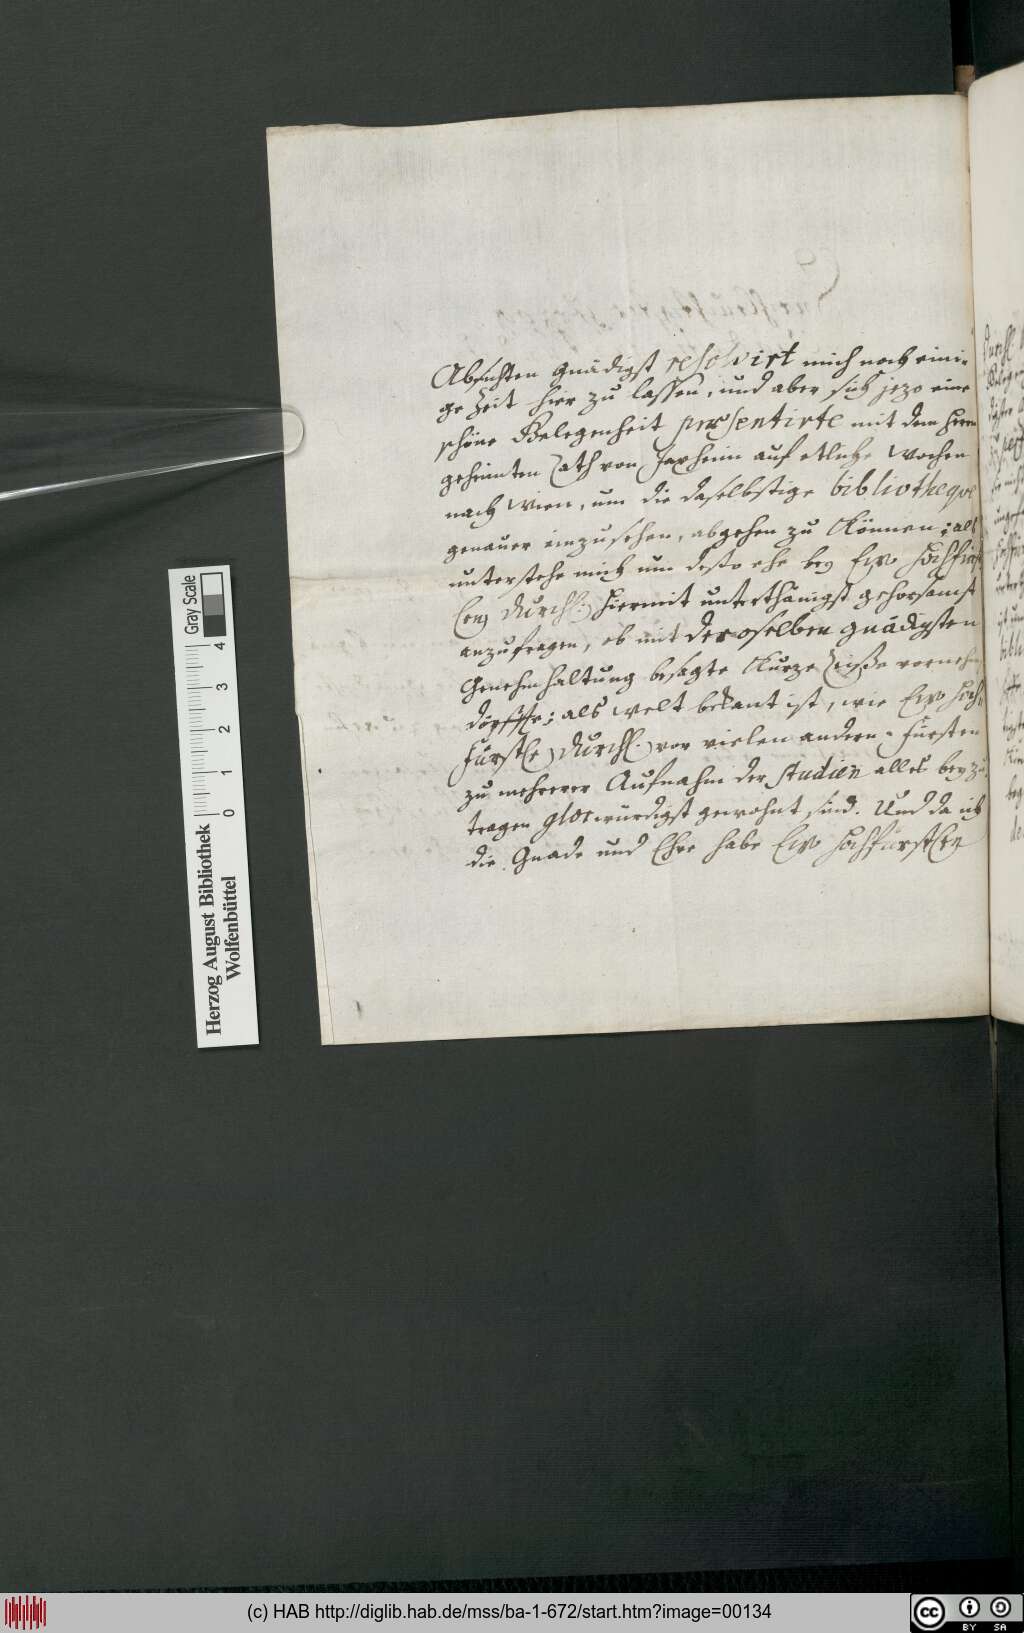 Absichten gnädigst resolvirt mich noch eini-
ge Zeit hier zu lassen, und aber sich jezo eine
schöne Gelegenheit præsentirte mit dem Herrn
geheimten Rath von Jaxheim auf etliche Wochen
nach Wien, um die daselbstige bibliotheque
genauer einzusehen, abgehen zu können; als
unterstehe mich um desto ehe bey Ew. Hochfürst
len) Durchl:) hiermit unterthänigst gehorsamst
anzufragen, ob mit deroselben gnädigsten
Genehmhaltung besagte kurze Reise vornehmen
dörffte; als welt bekant ist, wie Ew. Hoch-
fürstle) Durchl.) vor vielen andern Fürsten
zu mehrerer Aufnahm der studien alles beyzu-
tragen glorwürdigst gewohnt sind. Und da ich
die Gnade und Ehre habe Ew. Hochfürstlen
Gray Scale
0 1 2 3 4
Herzog August Bibliothek
Wolfenbüttel
(c) HAB http://diglib.hab.de/mss/ba-1-672/start.htm?image=00134
CC BY SA